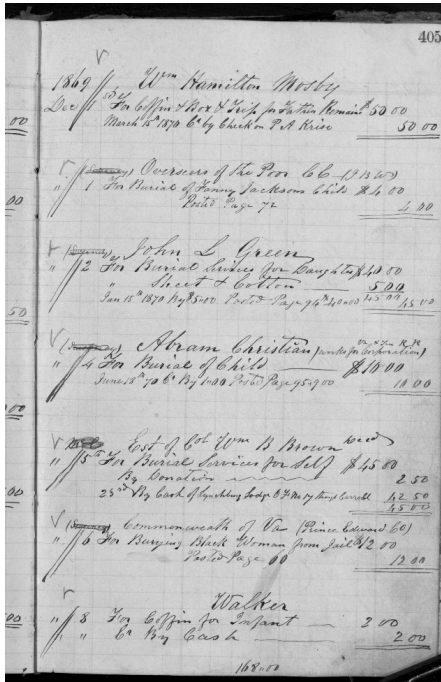 405
1869 Wm Hamilton Mosby
Dec 1 For Coffin & Box & Trip for Father Remains $50 00
March 15th 1870 Cr by Check on P A Krise 50 00
Overseers of the Poor C C
" 1 For Burial of Fanny Jacksons Child $4 00
Posted Page 72 4 00
John L Green
" 2 For Burial Services for Daughter $40 00
" Sheet & Cotton 5 00
Jan 15th 1870 By $5.00 Posted Page 94 40.00 45 00 45 00
Abram Christian (works for Corporation)
" 4 For Burial of Child $10 00
June 18th 70 Cr By 1.00 Posted Page 95 9.00 10 00
Est of Col Wm B Brown Decd
" 5th For Burial Services for Self $45 00
By Donation 2 50
23rd By Cash of Lynchburg Lodge 42 50
45 00
Commonwealth of Va (Prince Edward Co)
" 6 For Burying Black Woman from Jail $12 00
Posted Page 60 12 00
Walker
" 8 For Coffin for Infant 2 00
" " Cr By Cash 2 00
168.00
00
00
50
00
00
00